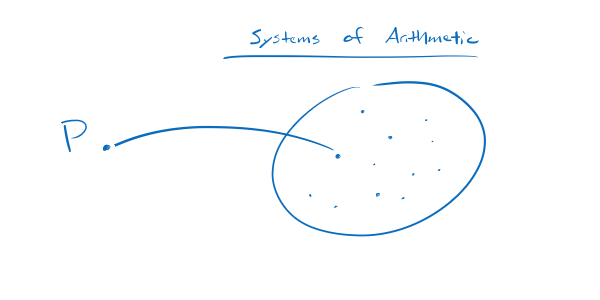 Systems of Arithmetic
P